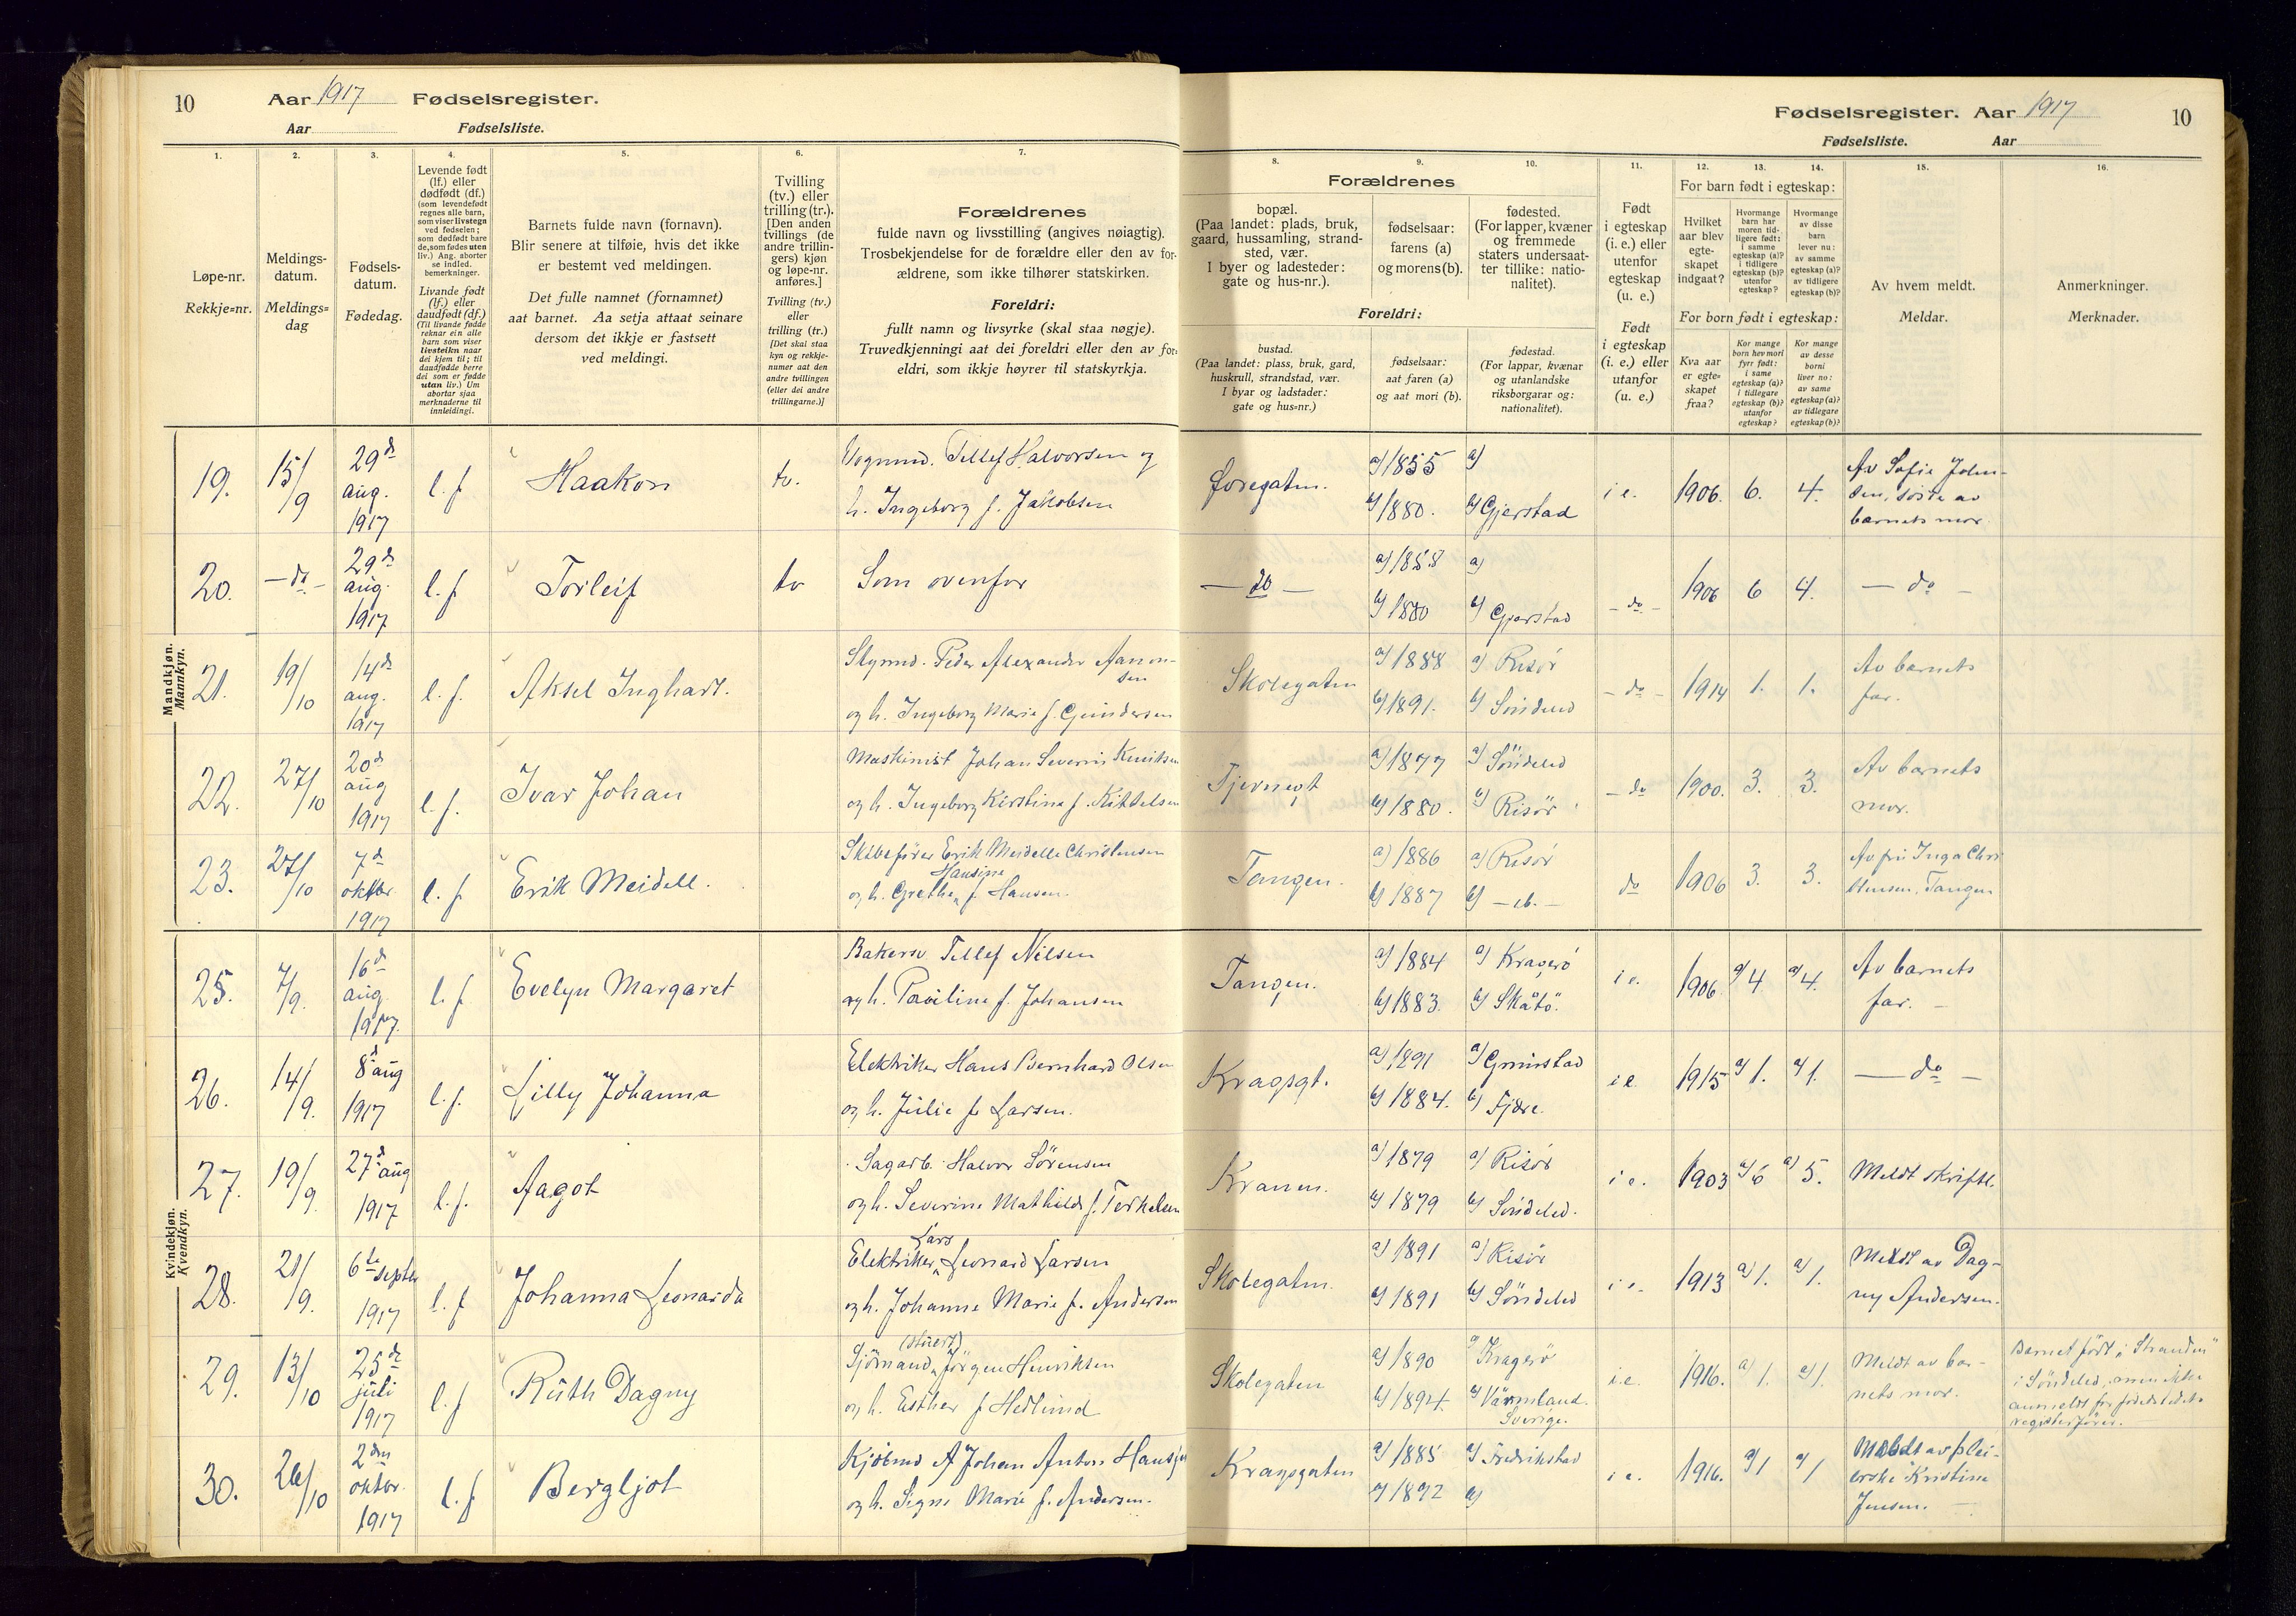 10 Aar 1917 Fødselsregister.
Aar Fødselsliste.
Fødselsregister. Aar 1917 10
Fødselsliste. Aar
1. 2. 3. 4. 5. 6. 7. 8. 9. 10. 11. 12. 13. 14. 15. 16.
Løpe-nr.
Rekkje=nr.
Meldings-
datum.
Meldings=
dag
Fødsels-
datum.
Fødedag.
Levende født
(lf.) eller
dødfødt (df.)
(som levendefødt
regnes alle barn,
som viser livstegn
ved fødselen;
som dødfødt bare
de, som fødes uten
liv.) Ang. aborter
se indled.
bemerkninger.
Livande født
(lf.) eller
daudfødt (df.)
(Til livande fødde
reknar ein alle
barn som viser
livsteikn naar
dei kjem til; til
daudfødde berre
dei som er fødde
utan liv.) Um
abortar sjaa
merknaderne til
innleidingi.
Barnets fulde navn (fornavn).
Blir senere at tilføie, hvis det ikke
er bestemt ved meldingen.
Det fulle namnet (fornamnet)
aat barnet. Aa setja attaat seinare
dersom det ikkje er fastsett
ved meldingi.
Tvilling
(tv.) eller
trilling (tr.).
[Den anden
tvillings (de
andre trillin-
gers) kjøn
og løpe-nr.
anføres.]
Tvilling (tv.)
eller
trilling (tr.)
[Det skal staa
kyn og rekkje-
numer aat den
andre tvillingen
(eller dei andre
trillingarne.)]
Forældrenes
fulde navn og livsstilling (angives nøiagtig).
Trosbekjendelse for de forældre eller den av for-
ældrene, som ikke tilhører statskirken.
Foreldri:
fullt namn og livsyrke (skal staa nøgje).
Truvedkjenningi aat dei foreldri eller den av for-
eldri, som ikkje høyrer til statskyrkja.
Forældrenes
bopæl.
(Paa landet: plads, bruk,
gaard, hussamling, strand-
sted, vær.
I byer og ladesteder:
gate og hus-nr.).
fødselsaar:
farens (a)
og morens (b).
fødested.
(For lapper, kvæner
og fremmede
staters undersaat-
ter tillike: natio-
nalitet).
Foreldri:
bustad.
(Paa landet: plass, bruk, gard,
huskrull, strandstad, vær.
I byar og ladstader:
gate og hus=nr.)
fødselsaar:
aat faren (a)
og aat mori (b).
fødestad.
(For lappar, kvænar
og utanlandske
riksborgarar og:
nationalitet).
Født
i egteskap
(i. e.) eller
utenfor
egteskap
(u. e.)
Født
i egteskap
(i. e.) eller
utanfor
(u. e.)
For barn født i egteskap:
Hvilket
aar blev
egte-
skapet
indgaat?
Hvormange
barn har
moren tid-
ligere født:
i samme
egteskap (a)?
i tidligere
egteskap (b)?
utenfor
egteskap?
Hvormange
av disse
barn
lever nu:
av samme
egteskap (a)?
av tidligere
egteskap (b)?
For born født i egteskap:
Kva aar
er egte=
skapet
fraa?
Kor mange
born hev mori
fyrr født:
i same
egteskap (a)?
i tidlegare
egteskap (b)?
utanfor
egteskap?
Kor mange
av desse
borni
liver no:
av same
egteskap (a)?
av tidlegare
egteskap (b)?
Av hvem meldt.
Meldar.
Anmerkninger.
Merknader.
Mandkjøn.
Mannkyn.
19. 15/9 29de aug. 1917 l. f. Haakon tv.
Vognmd. Tellef Halvorsen og
h. Ingeborg f. Jakobsen
a) 1855 a)
b) 1880. b) Gjerstad
i e. 1906. 6. 4.
Av Sofie John-
sen, søste av
barnets mor.
20. — do — 29de aug. 1917 l. f. Torleif tv Som ovenfor
— do — a) 1855 a)
b) 1880 b) Gjerstad
— do — 1906 6 4. — do —
21. 19/10 14de aug. 1917 l. f. Aksel Inghart.
Peder Alexander Aanon-
sen
og h. Ingeborg Marie f. Gundersen
Skolegaten a) 1888 a) Risør
b) 1891. b) Søndeled
— do — 1914 1. 1.
Av barnets
far.
22. 27/10 20de aug 1917 l. f. Ivar Johan
Maskinist Johan Severin
og h. Ingeborg Kirstine f. Kittelsen
a) 1877 a) Søndeled
b) 1880. b) Risör
— do 1900. 3. 3.
Av barnets
mor.
23. 27/10 7de oktbr. 1917 l. f. Erik Meidell.
Skibsfører Erik Meidelle Christensen
Hansine
og h. Grethe f. Hansen.
Tangen. a) 1886 a) Risør
b) 1887 b) —
do 1906 3. 3.
Av fru Inga Chri
stensen, Tangen
Kvindekjøn.
Kvendkyn.
25. 7/9. 16de aug. 1917. l. f. Evelyn Margaret
Bakersv. Tellef Nilsen
og h. Pauline f. Johansen
Tangen. a) 1884 a) Kragerö
b) 1883. b) Skåtö.
i e. 1906. a) 4 a) 4.
Av barnets
far. —
26. 14/9. 8de aug 1917 l. f. Lilly Johanna
Elektriker Hans Bernhard Olsen
og h. Julie f. Larsen.
Kragsgt. a) 1891 a) Grimstad
b) 1884. b) Fjære.
i e 1915 a) 1. a) 1. — do —
27. 19/9. 27de aug 1917 l. f. Aagot
Sagarb. Halvor Sörensen
og h. Severine Mathilde f. Terkelsen
Kranen. a) 1879 a) Risör
b) 1879 b) Söndeled.
i e. 1903 a) 6 a) 5. Meldt skriftl.
28. 21/9. 6te septbr 1917 l. f Johanna Leonarda
Lars
Elektriker Leonard Larsen
og h. Johanne Marie f. Andersen
Skolegaten. a) 1891 a) Risör
b) 1891 b) Söndeled
i e. 1913 a) 1. a) 1.
Meldt av Dag-
ny Andersen.
29. 13/10 25de juli 1917 l. f Ruth Dagny
(stuert)
Sjömand Jörgen Henriksen
og h. Esther f Hedlund
Skolegaten a) 1890 a) Kragerö
b) 1894. b) Värmland.
Sverige.
i e. 1916. a) 1. a) 1.
Meldt av bar-
nets mor.
Barnet født i "Stranden"
i Söndeled, men ikke
anmeldt for fødestedets
registerfører.
30. 26/10 2den oktbr. 1917 l. f Bergljot
Kjöbmd A Johan Anton
og h. Signe Marie f. Andersen.
Kragsgaten a) 1885 a) Fredrikstad
b) 1892 b)
i e. 1916. a) 1 a) 1
Meldt av plei-
erske Kristine
Jensen. —